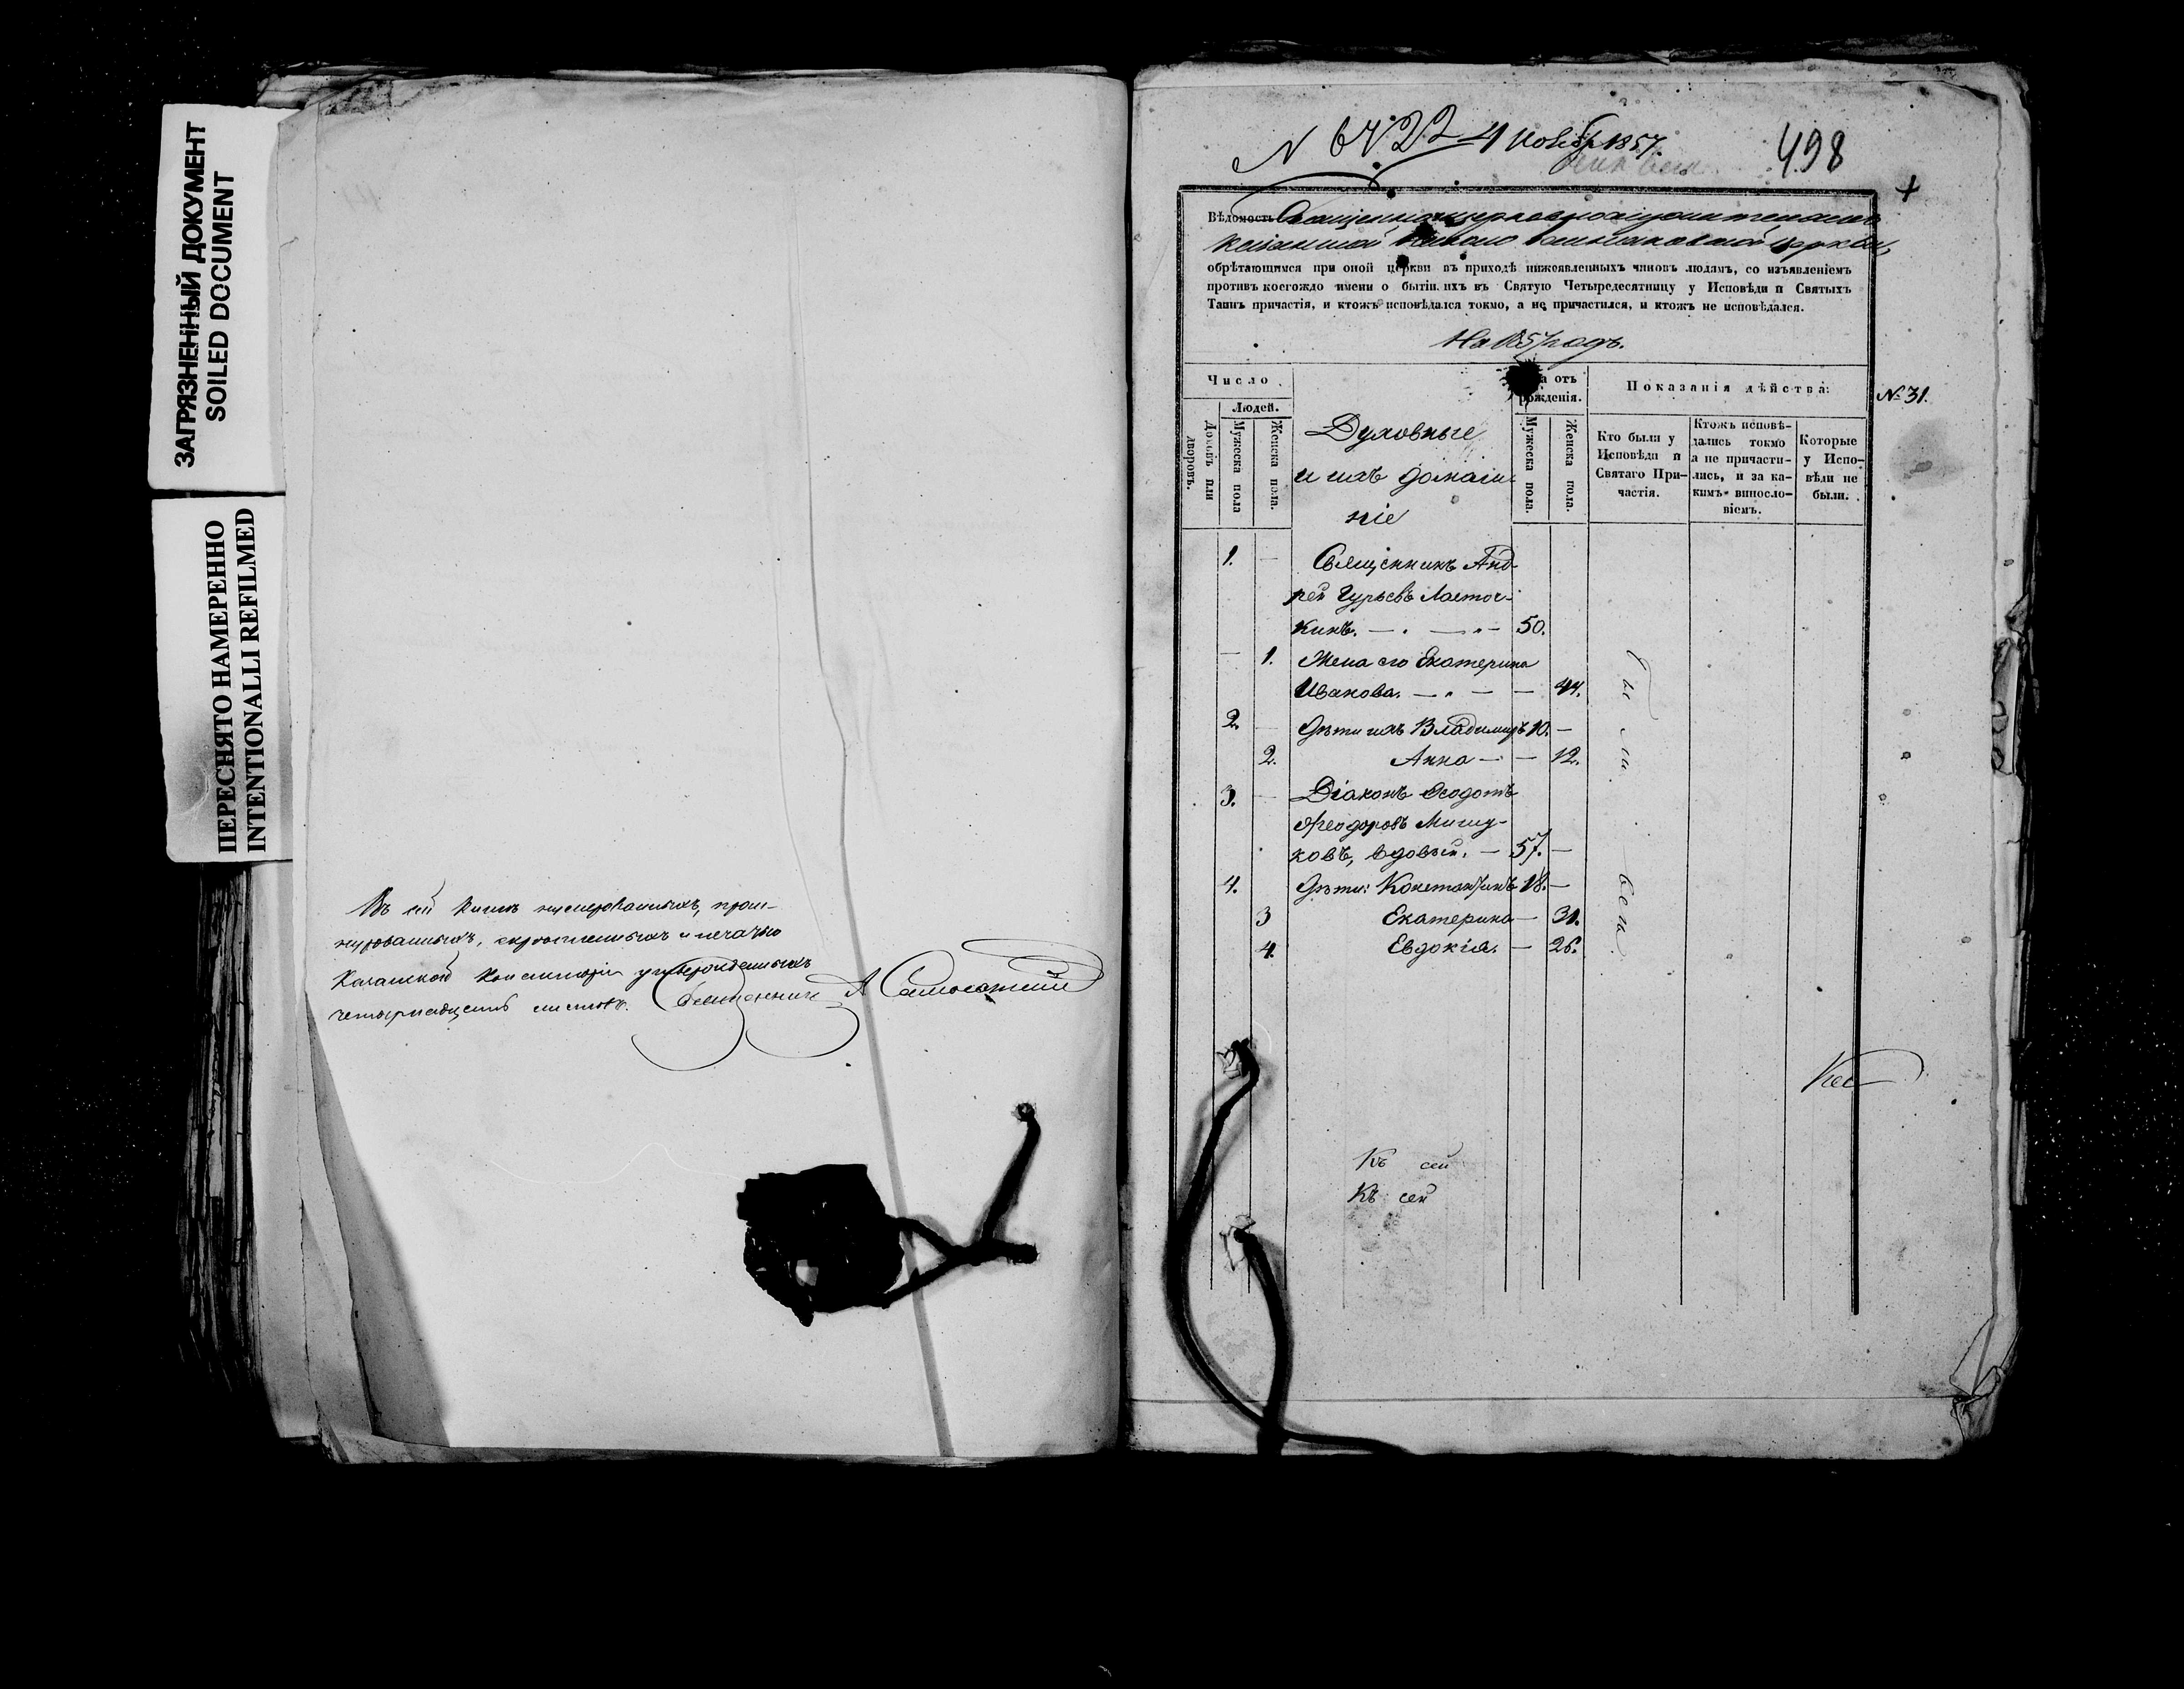 ЗАГРЯЗНЕННЫЙ ДОКУМЕНТ
SOILED DOCUMENT
ПЕРЕСНЯТО НАМЕРЕННО
INTENTIONALLI REFILMED
Въ сей книгѣ нумерованныхъ, прош-
нурованныхъ, скрѣпленныхъ и печатью
Казанской Консисторіи утвержденныхъ
четырнадцать листовъ. Священникъ А
N 6422 4 Ноября 1857.
498
Вѣдомость
церкви,
обрѣтающимся при оной церкви въ приходѣ нижеявленныхъ чиновъ людямъ, со изъявленіемъ
противъ коегождо имени о бытіи ихъ въ Святую Четыредесятницу у Исповѣди и Святыхъ
Таинъ причастія, и ктожъ исповѣдался токмо, а не причастился, и ктожъ не исповѣдался.
На 1857 годъ.
Число
Людей.
Домовъ или дворовъ.
Мужеска пола
Женска пола.
Духовные
и ихъ домаш
ніе
отъ
рожденія.
Мужеска пола.
Женска пола.
Показанія дѣйства:
Кто были у
Исповѣди и
Святаго При-
частія.
Ктожъ исповѣ-
дались токмо
а не причасти-
лись, и за ка-
кимъ винosло-
віемъ.
Которые
у Испо-
вѣди не
были.
№ 31.
1. — Священникъ Анд-
рей Гурьевъ Ласточ-
кинъ. — 50.
— 1. Жена его Екатерина
Иванова. — — 44.
2. — Дѣти ихъ Владимиръ 10. —
2. Анна — — 12.
3. — Діаконъ Ѳеодотъ
Ѳеодоровъ Мишу-
ковъ, вдовый. — 57. —
4. Дѣти: Константинъ 18. —
3 Екатерина — 31.
4. Евдокія. — 26.
Бы
ли.
Къ сей
Къ сей